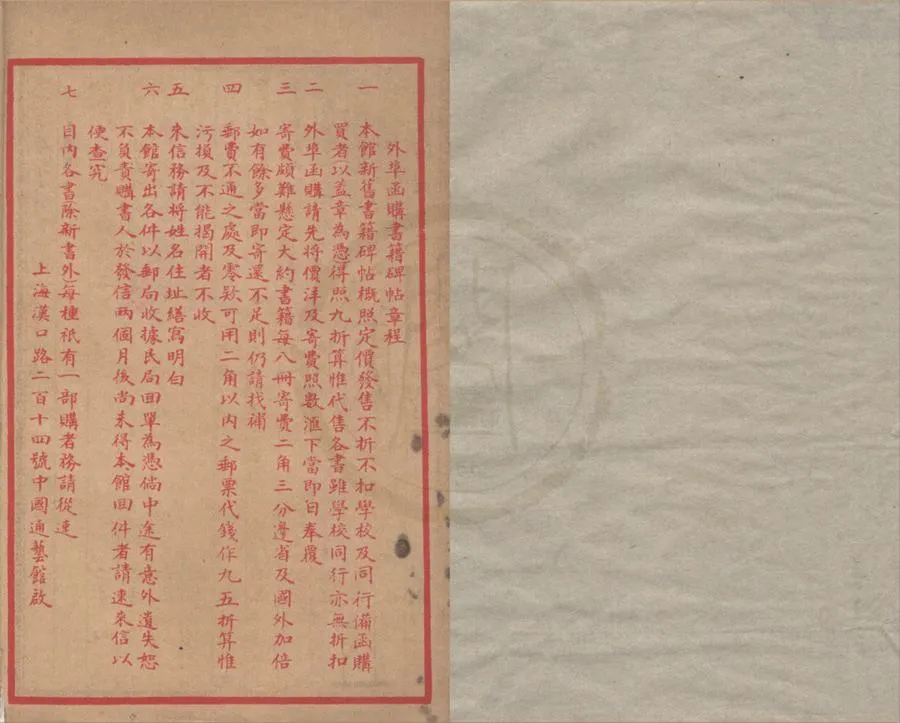 外埠函購書籍碑帖章程
一 本館新舊書籍碑帖概照定價發售不折不扣學校及同行備函購
買者以蓋章為憑得照九折算惟代售各書雖學校同行亦無折扣
二 外埠函購請先將價洋及寄費照數滙下當即日奉覆
三 寄費頗難懸定大約書籍每八冊寄費二角三分邊省及國外加倍
如有餘多當即寄還不足則仍請找補
四 郵費不通之處及零欵可用二角以內之郵票代錢作九五折算惟
污損及不能揭開者不收
五 來信務請將姓名住址繕寫明白
六 本館寄出各件以郵局收據民局回單為憑倘中途有意外遺失恕
不負責購書人於發信兩個月後尚未得本館回件者請速來信以
便查究
七 目內各書除新書外每種祇有一部購者務請從速
上海漢口路二百十四號中國通藝館啟